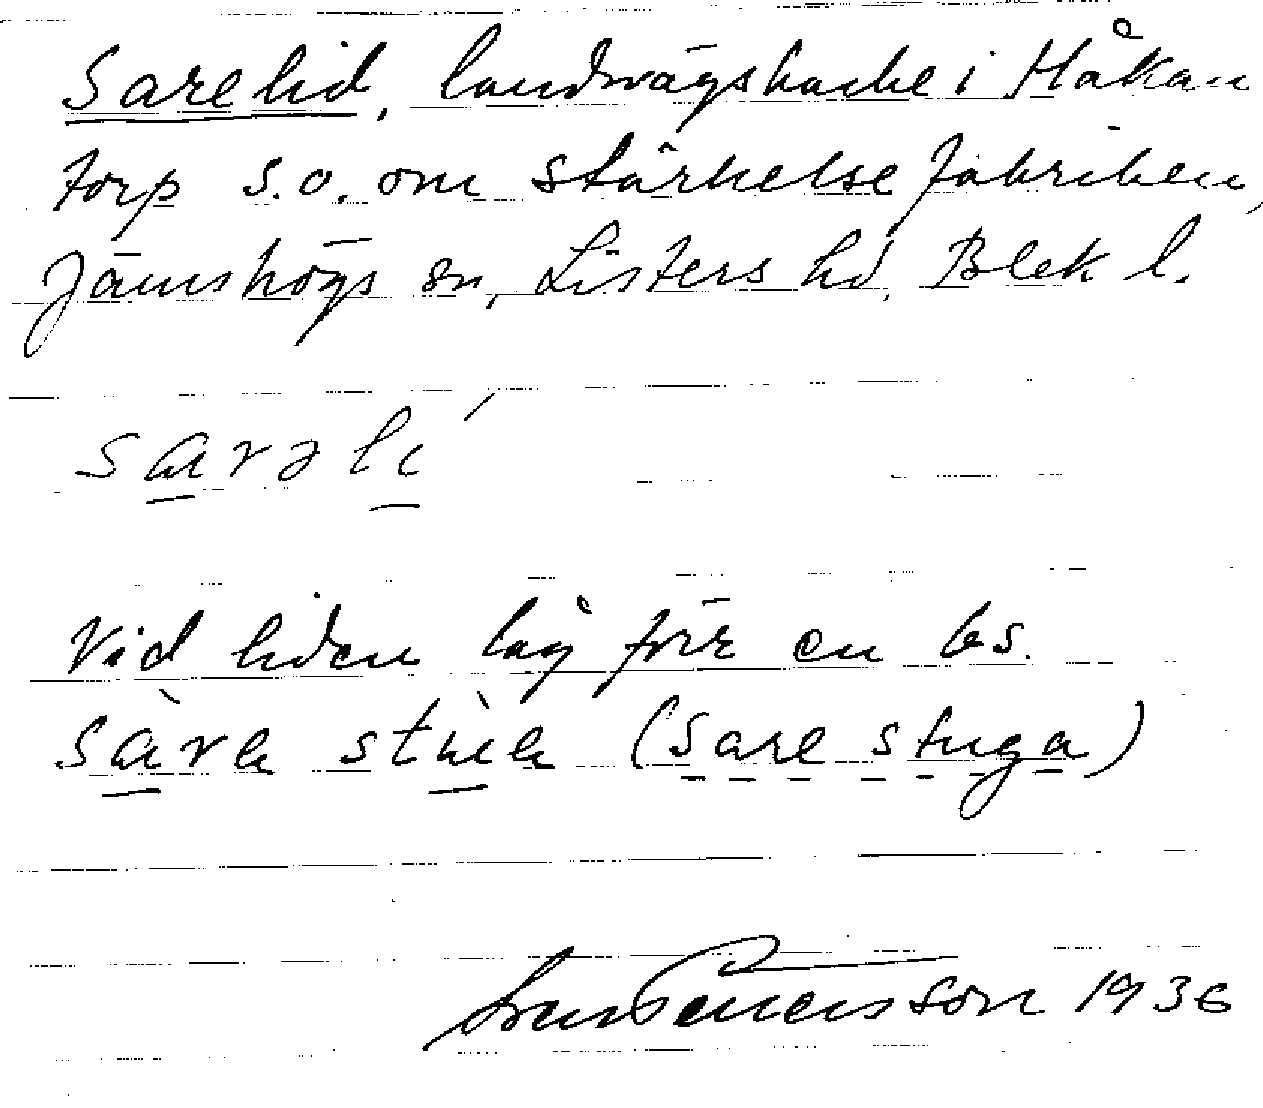 Sarelid, landsvägsbacke i Håkan
torp S.O. om stärkelsefabriken,
Jämshögs sn, Listers hd, Blek l.
sarəli ́
Vid liden låg förr en bs.
Sàra stùa (Sare stuga)
Sven Benersson 1936